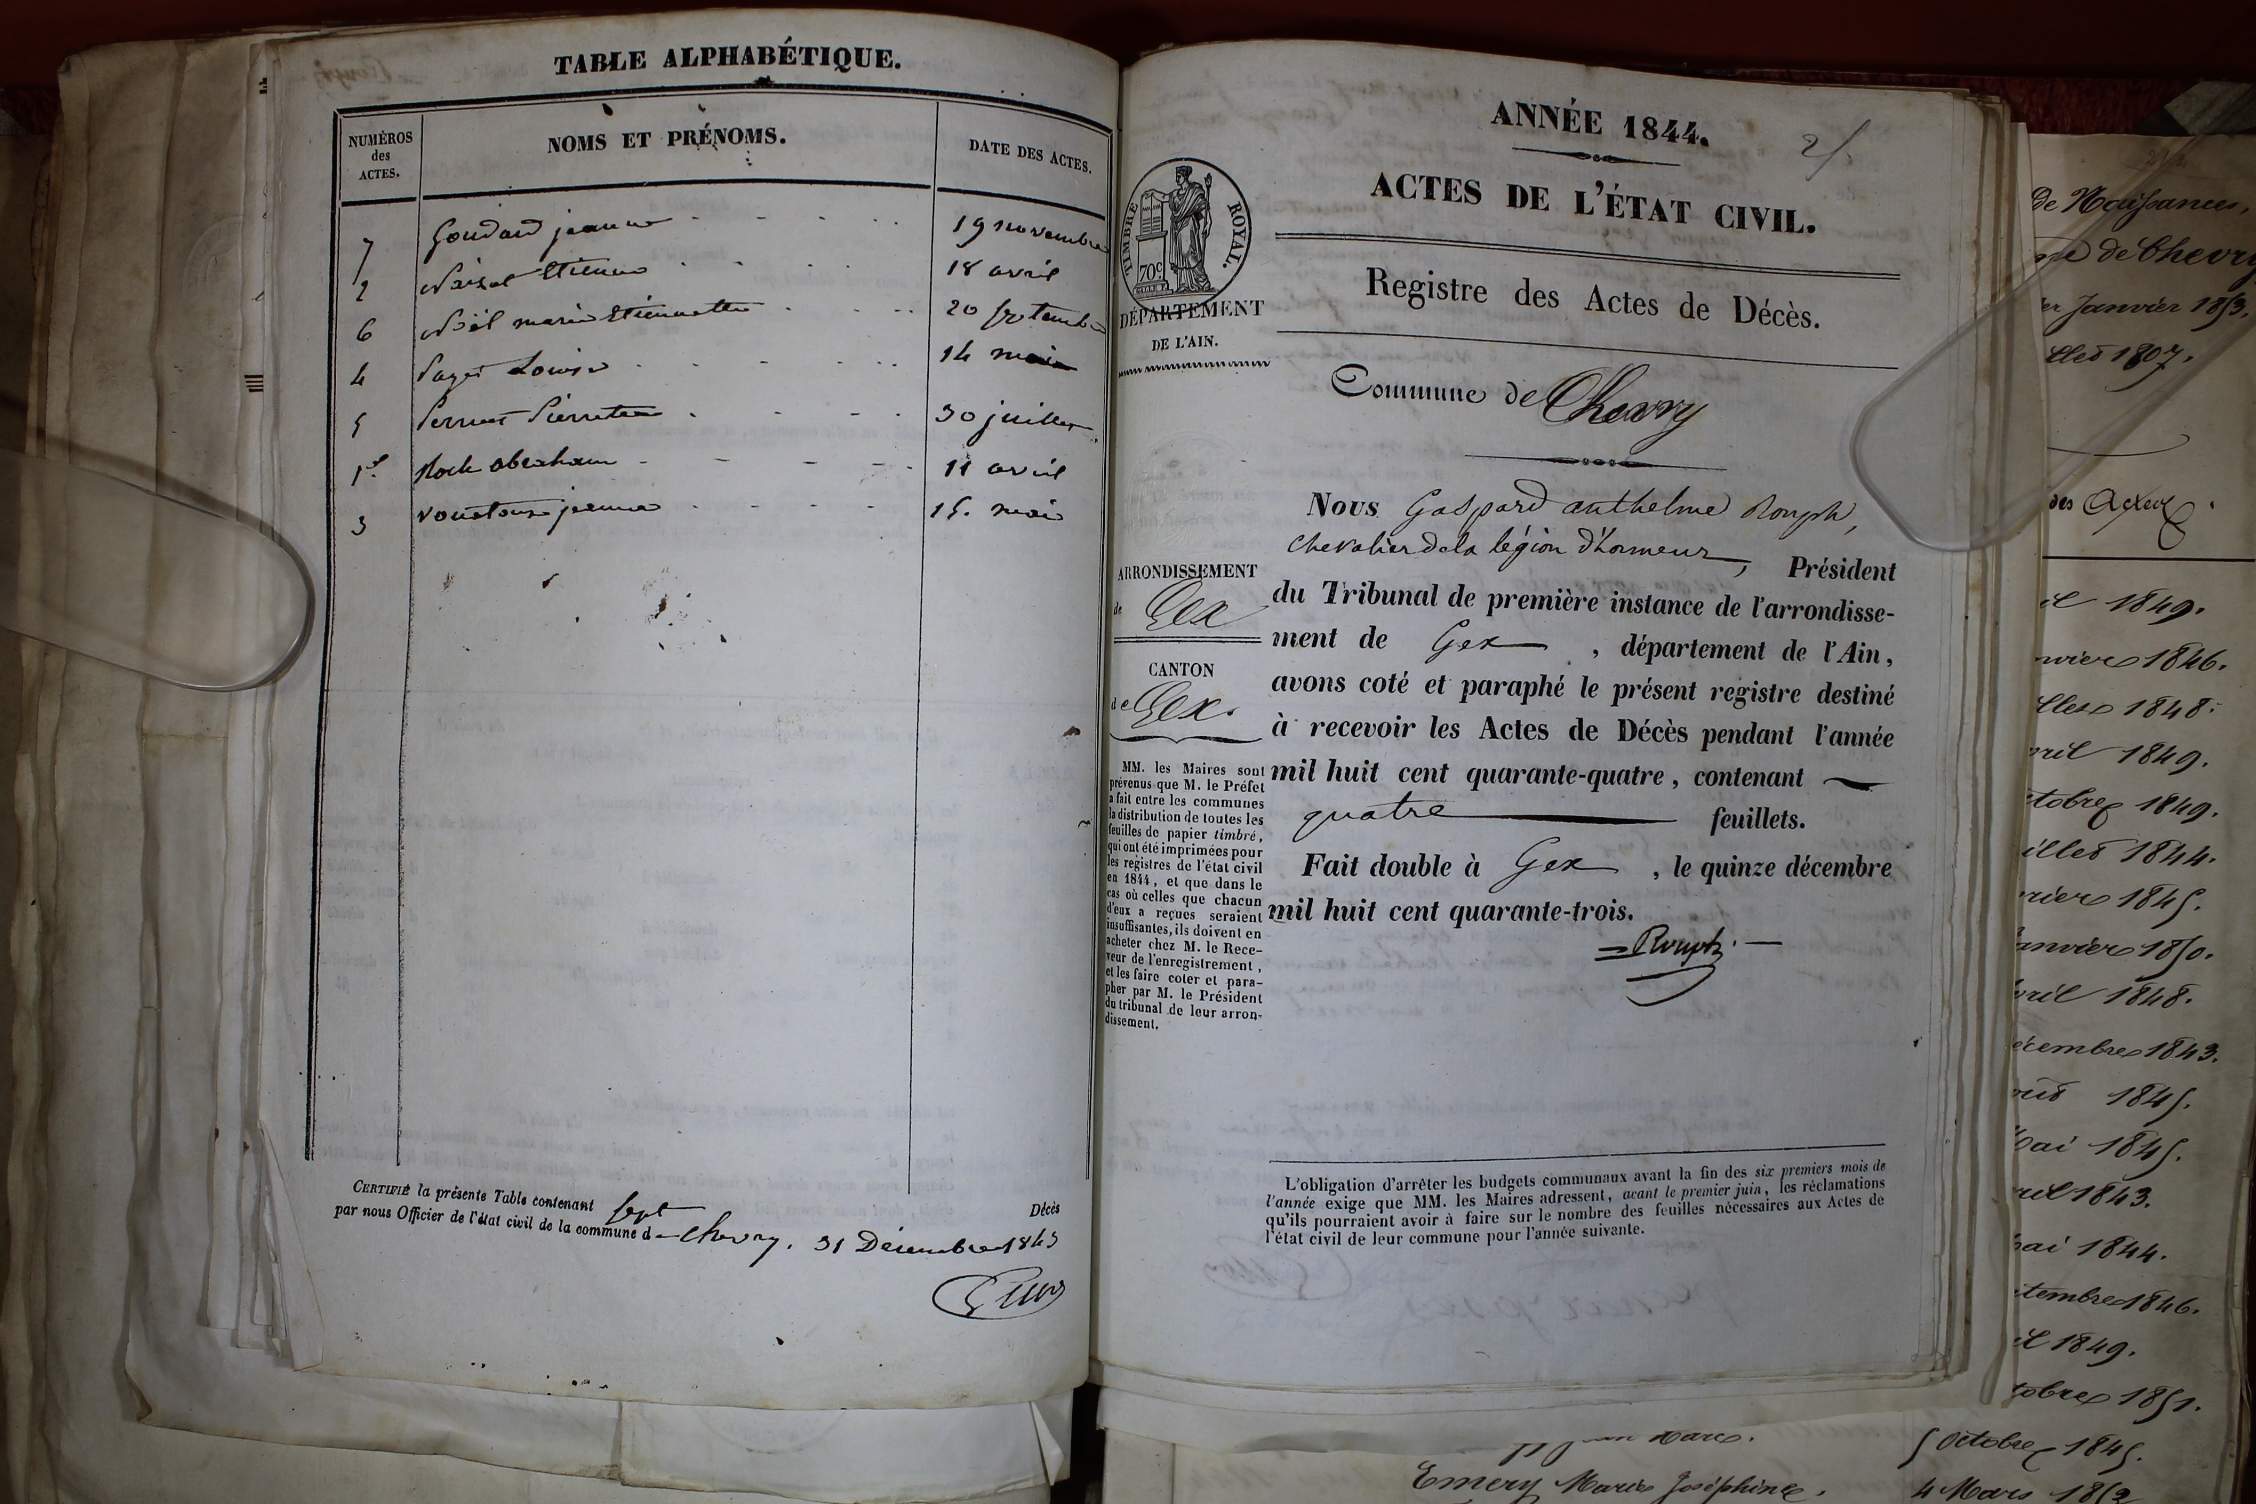 TABLE ALPHABÉTIQUE.
NUMÉROS des ACTES.
NOMS ET PRÉNOMS.
DATE DES ACTES.
7 Goudard jeanne 19 novembre
2 Etienne 18 avril
6 Noël marie Etiennette 20 septembre
4 Paget Louise 14 mai
5 Perruet Pierrette 30 juillet
1er Rock abraham 11 avril
3 jeanne 15. mai
CERTIFIÉ la présente Table contenant sept Décès
par nous Officier de l'état civil de la commune d Chevry. 31 Décembre 1843
ANNÉE 1844.
ACTES DE L'ÉTAT CIVIL.
TIMBRE ROYAL.
70c
DÉPARTEMENT
DE L'AIN.
Registre des Actes de Décès.
Commune de Chevry
ARRONDISSEMENT
de Gex
CANTON
de Gex.
MM. les Maires sont
prévenus que M. le Préfet
a fait entre les communes
la distribution de toutes les
feuilles de papier timbré,
qui ont été imprimées pour
les registres de l'état civil
en 1844, et que dans le
cas où celles que chacun
d'eux a reçues seraient
insuffisantes, ils doivent en
acheter chez M. le Rece-
veur de l'enregistrement,
et les faire coter et para-
pher par M. le Président
du tribunal de leur arron-
dissement.
Nous Gaspard anthelme Rouph,
chevalier de la légion d'honneur, Président
du Tribunal de première instance de l'arrondisse-
ment de Gex, département de l'Ain,
avons coté et paraphé le présent registre destiné
à recevoir les Actes de Décès pendant l'année
mil huit cent quarante-quatre, contenant
quatre feuillets.
Fait double à Gex, le quinze décembre
mil huit cent quarante-trois.
Rouph.
L'obligation d'arrêter les budgets communaux avant la fin des six premiers mois de
l'année exige que MM. les Maires adressent, avant le premier juin, les réclamations
qu'ils pourraient avoir à faire sur le nombre des feuilles nécessaires aux Actes de
l'état civil de leur commune pour l'année suivante.
de Naissances,
de Chevry
Janvier 1853.
1807.
des Actes
1849.
1846.
1848.
1849.
1849.
1844.
1845.
1850.
1848.
1843.
1845.
1845.
1843.
1844.
1846.
1849.
1851.
5 Octobre 1845.
Emery Marie Joséphine. 4 Mars